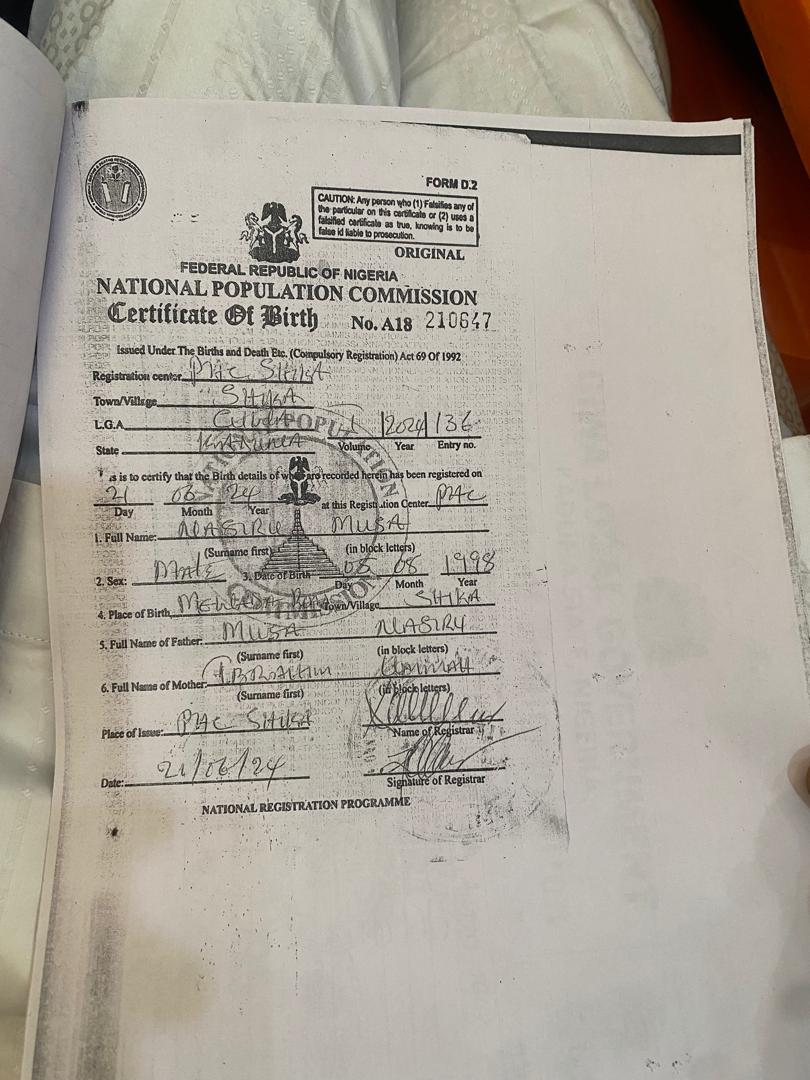 FORM D.2
CAUTION: Any person who (1) Falsifies any of
the particular on this certificate or (2) uses a
falsified certificate as true, knowing is to be
false id liable to prosecution.
ORIGINAL
FEDERAL REPUBLIC OF NIGERIA
NATIONAL POPULATION COMMISSION
Certificate Of Birth No. A18 210647
Issued Under The Births and Death Etc. (Compulsory Registration) Act 69 Of 1992
Registration center PHC SHIKA
Town/Village SHIKA
L.G.A. 2024 136
State KADUNA Volume Year Entry no.
is is to certify that the Birth details of are recorded herein has been registered on
21 06 24 at this Registration Center PHC
Day Month Year
1. Full Name: NASIRU MUSA
(Surname first) (in block letters)
2. Sex: MALE 3. Date of Birth 08 08 1998
Day Month Year
4. Place of Birth Town/Village SHIKA
5. Full Name of Father: MUSA NASIRU
(Surname first) (in block letters)
6. Full Name of Mother: IBRAHIM
(Surname first) (in block letters)
Place of Issue: PHC SHIKA
Name of Registrar
Date: 21/06/24
Signature of Registrar
NATIONAL REGISTRATION PROGRAMME